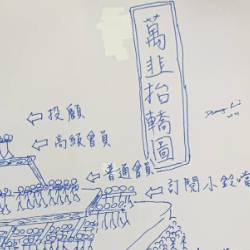 萬韭抬轎圖
投顧
高級會員
普通會員
訂閱小鈴噹